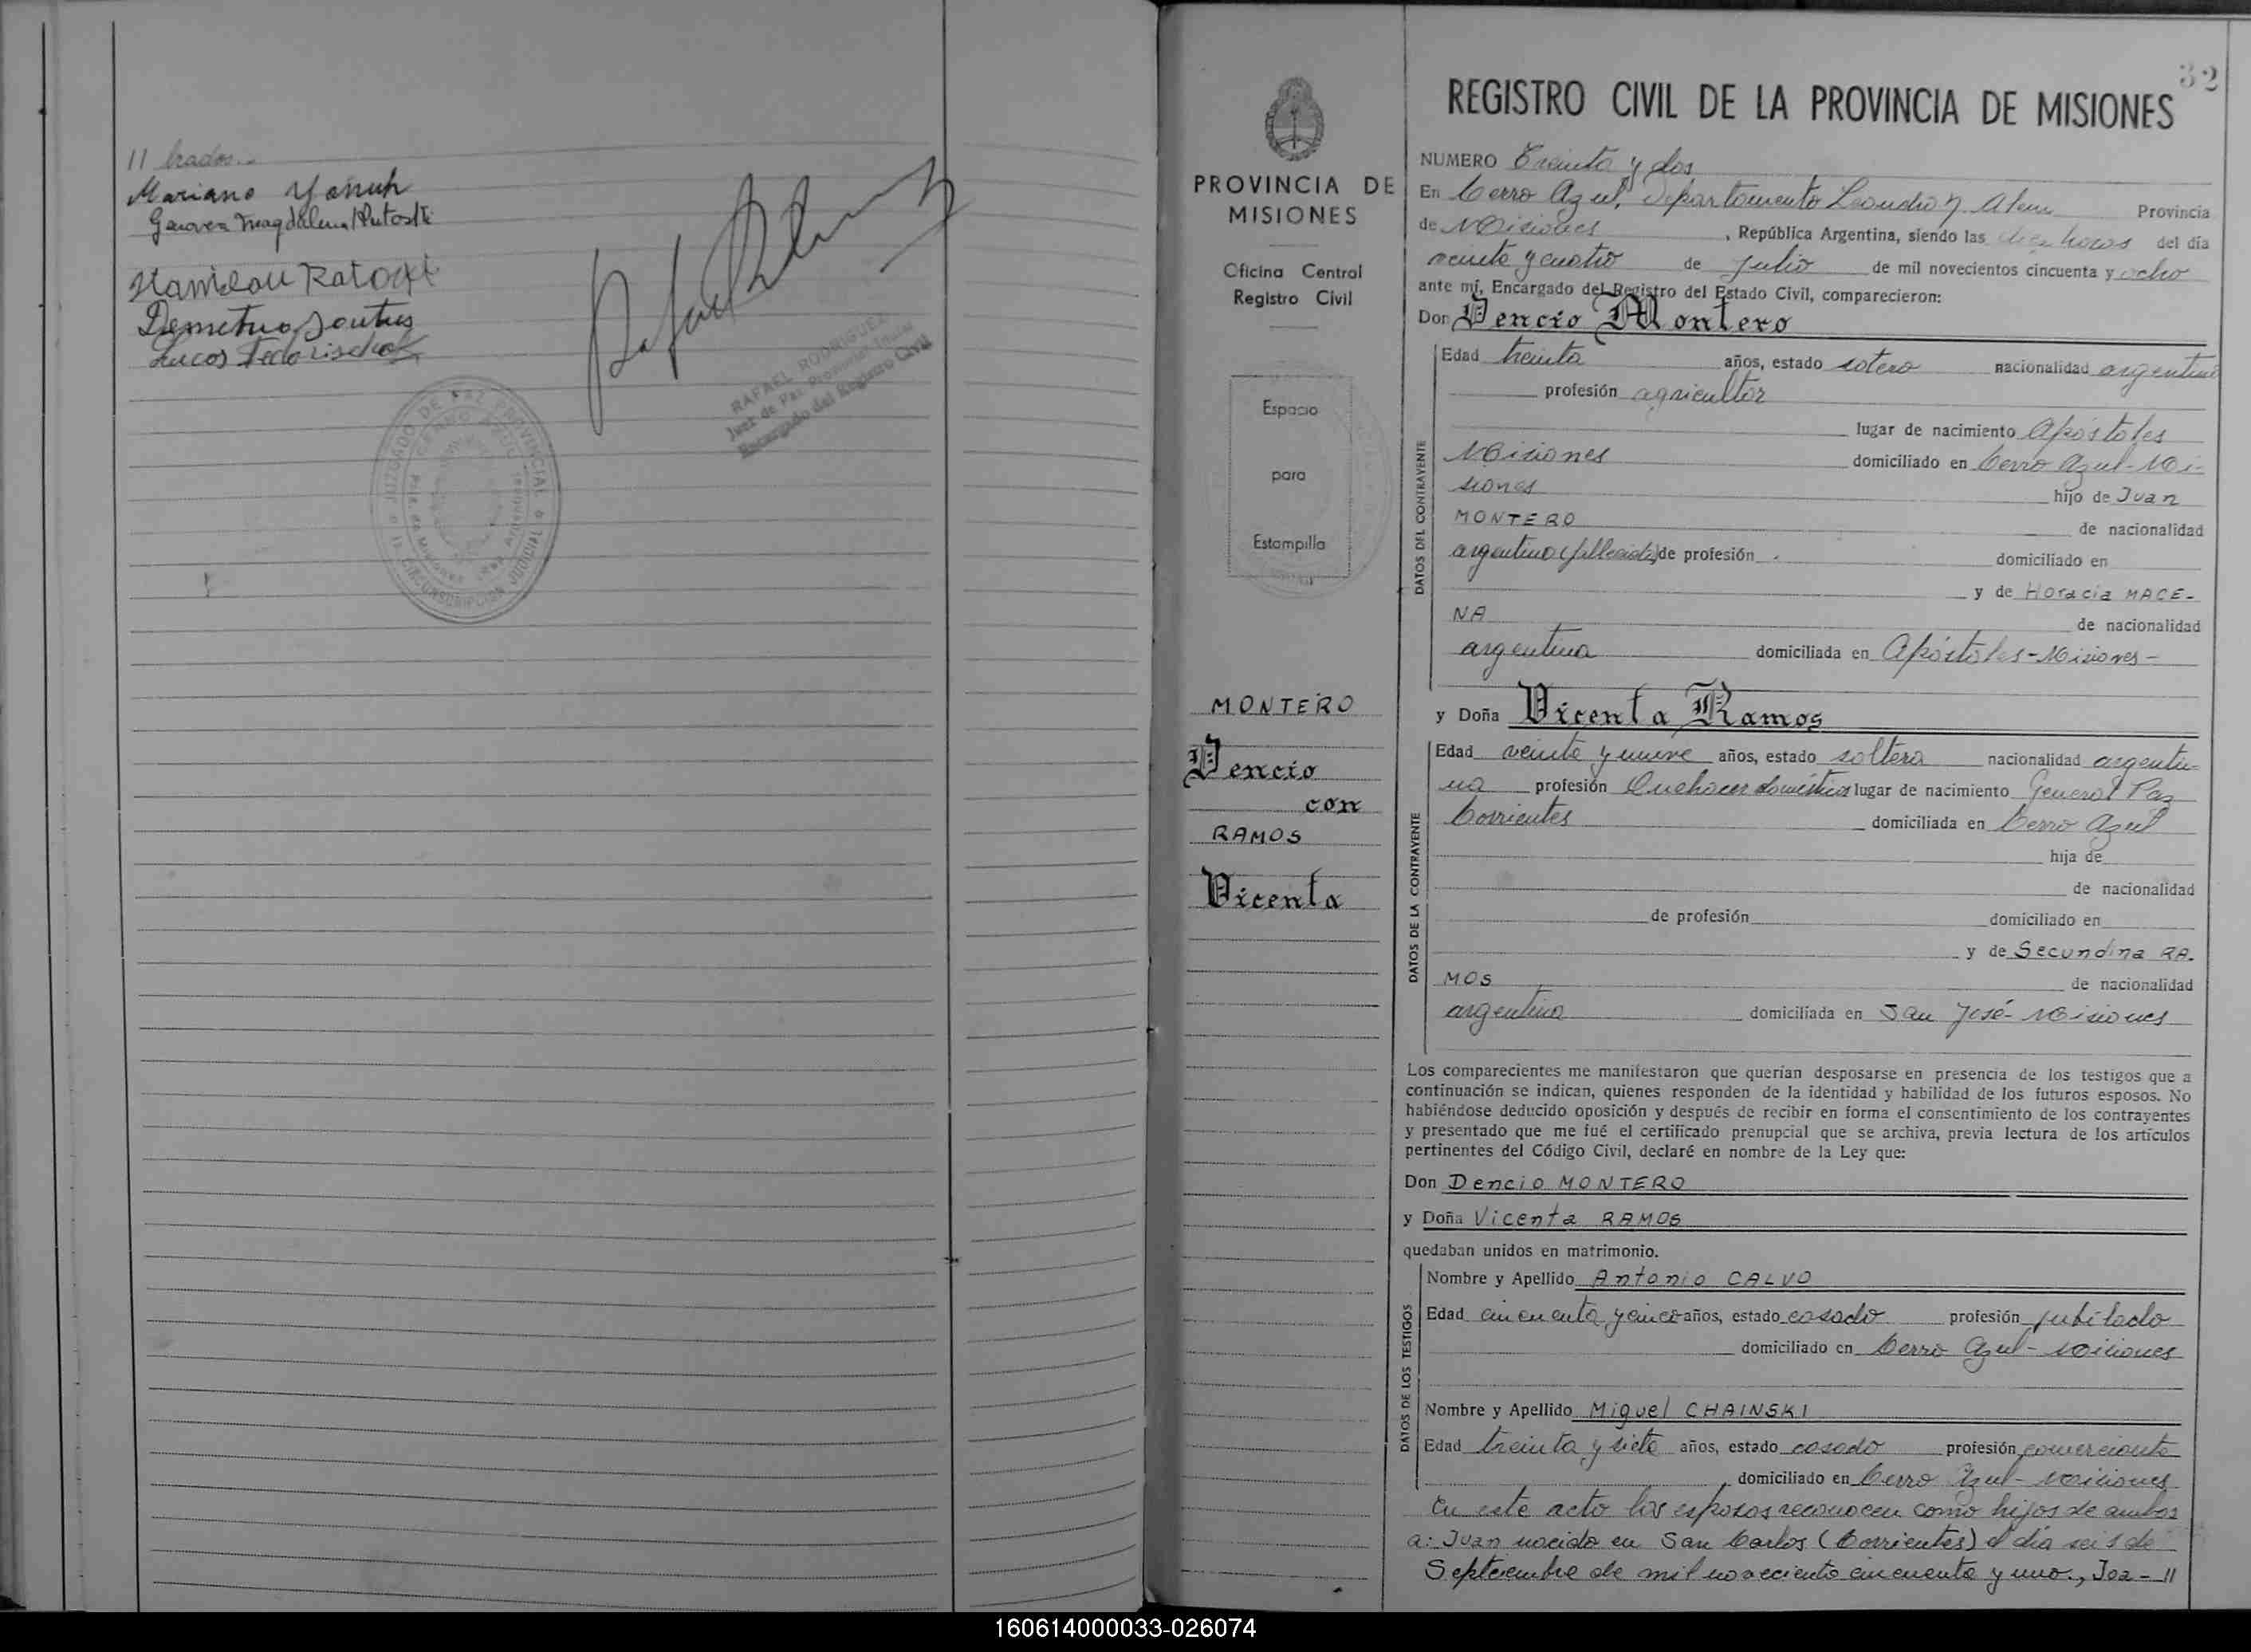 11 trados..
Mariano Yanuk
Genoveva Magdalena
Stanislau Ratoski
Demetrio
Lucas
RAFAEL RODRIGUEZ
Juez de Paz Provincial Titular
Encargado del Registro Civil
JUZGADO DE PAZ PROVINCIAL
CERRO AZUL
CIRCUNSCRIPCION JUDICIAL
32
PROVINCIA DE
MISIONES
Oficina Central
Registro Civil
Espacio
para
Estampilla
MONTERO
Dencio
con
RAMOS
Vicenta
REGISTRO CIVIL DE LA PROVINCIA DE MISIONES
NUMERO Treinta y dos
En Cerro Azul, Departamento Leandro N. Alem Provincia
de Misiones, República Argentina, siendo las diez horas del día
veinte y cuatro de Julio de mil novecientos cincuenta y ocho
ante mí, Encargado del Registro del Estado Civil, comparecieron:
Don Dencio Montero
DATOS DEL CONTRAYENTE
Edad treinta años, estado sotero nacionalidad argentino
profesión agricultor
lugar de nacimiento Apóstoles
Misiones domiciliado en Cerro Azul-Mi-
siones hijo de Juan
MONTERO de nacionalidad
argentino (fallecido) de profesión domiciliado en
y de Horacia MACE-
NA de nacionalidad
argentina domiciliada en Apóstoles-Misiones-
y Doña Vicenta Ramos
DATOS DE LA CONTRAYENTE
Edad veinte y nueve años, estado soltera nacionalidad argenti-
na profesión Quehacer domésticos lugar de nacimiento General Paz
Corrientes domiciliada en Cerro Azul
hija de
de nacionalidad
de profesión domiciliado en
y de Secundina RA-
MOS de nacionalidad
argentina domiciliada en San José-Misiones
Los comparecientes me manifestaron que querían desposarse en presencia de los testigos que a
continuación se indican, quienes responden de la identidad y habilidad de los futuros esposos. No
habiéndose deducido oposición y después de recibir en forma el consentimiento de los contrayentes
y presentado que me fué el certificado prenupcial que se archiva, previa lectura de los artículos
pertinentes del Código Civil, declaré en nombre de la Ley que:
Don Dencio MONTERO
y Doña Vicenta RAMOS
quedaban unidos en matrimonio.
DATOS DE LOS TESTIGOS
Nombre y Apellido Antonio CALVO
Edad cincuenta y cinco años, estado casado profesión jubilado
domiciliado en Cerro Azul-Misiones
Nombre y Apellido Miguel CHAINSKI
Edad treinta y siete años, estado casado profesión comerciante
domiciliado en Cerro Azul-Misiones
En este acto los esposos reconocen como hijos de ambos
a: Juan nacido en San Carlos (Corrientes) el día seis de
Septiembre de mil novecientos cincuenta y uno., Joa-11
160614000033-026074